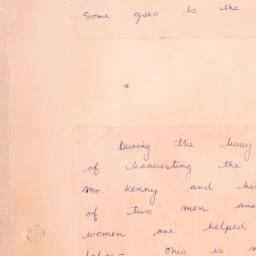 Some goes to the
During the busy
of harvesting the
Mr Kenny and his
of two men and
women are helped
This is